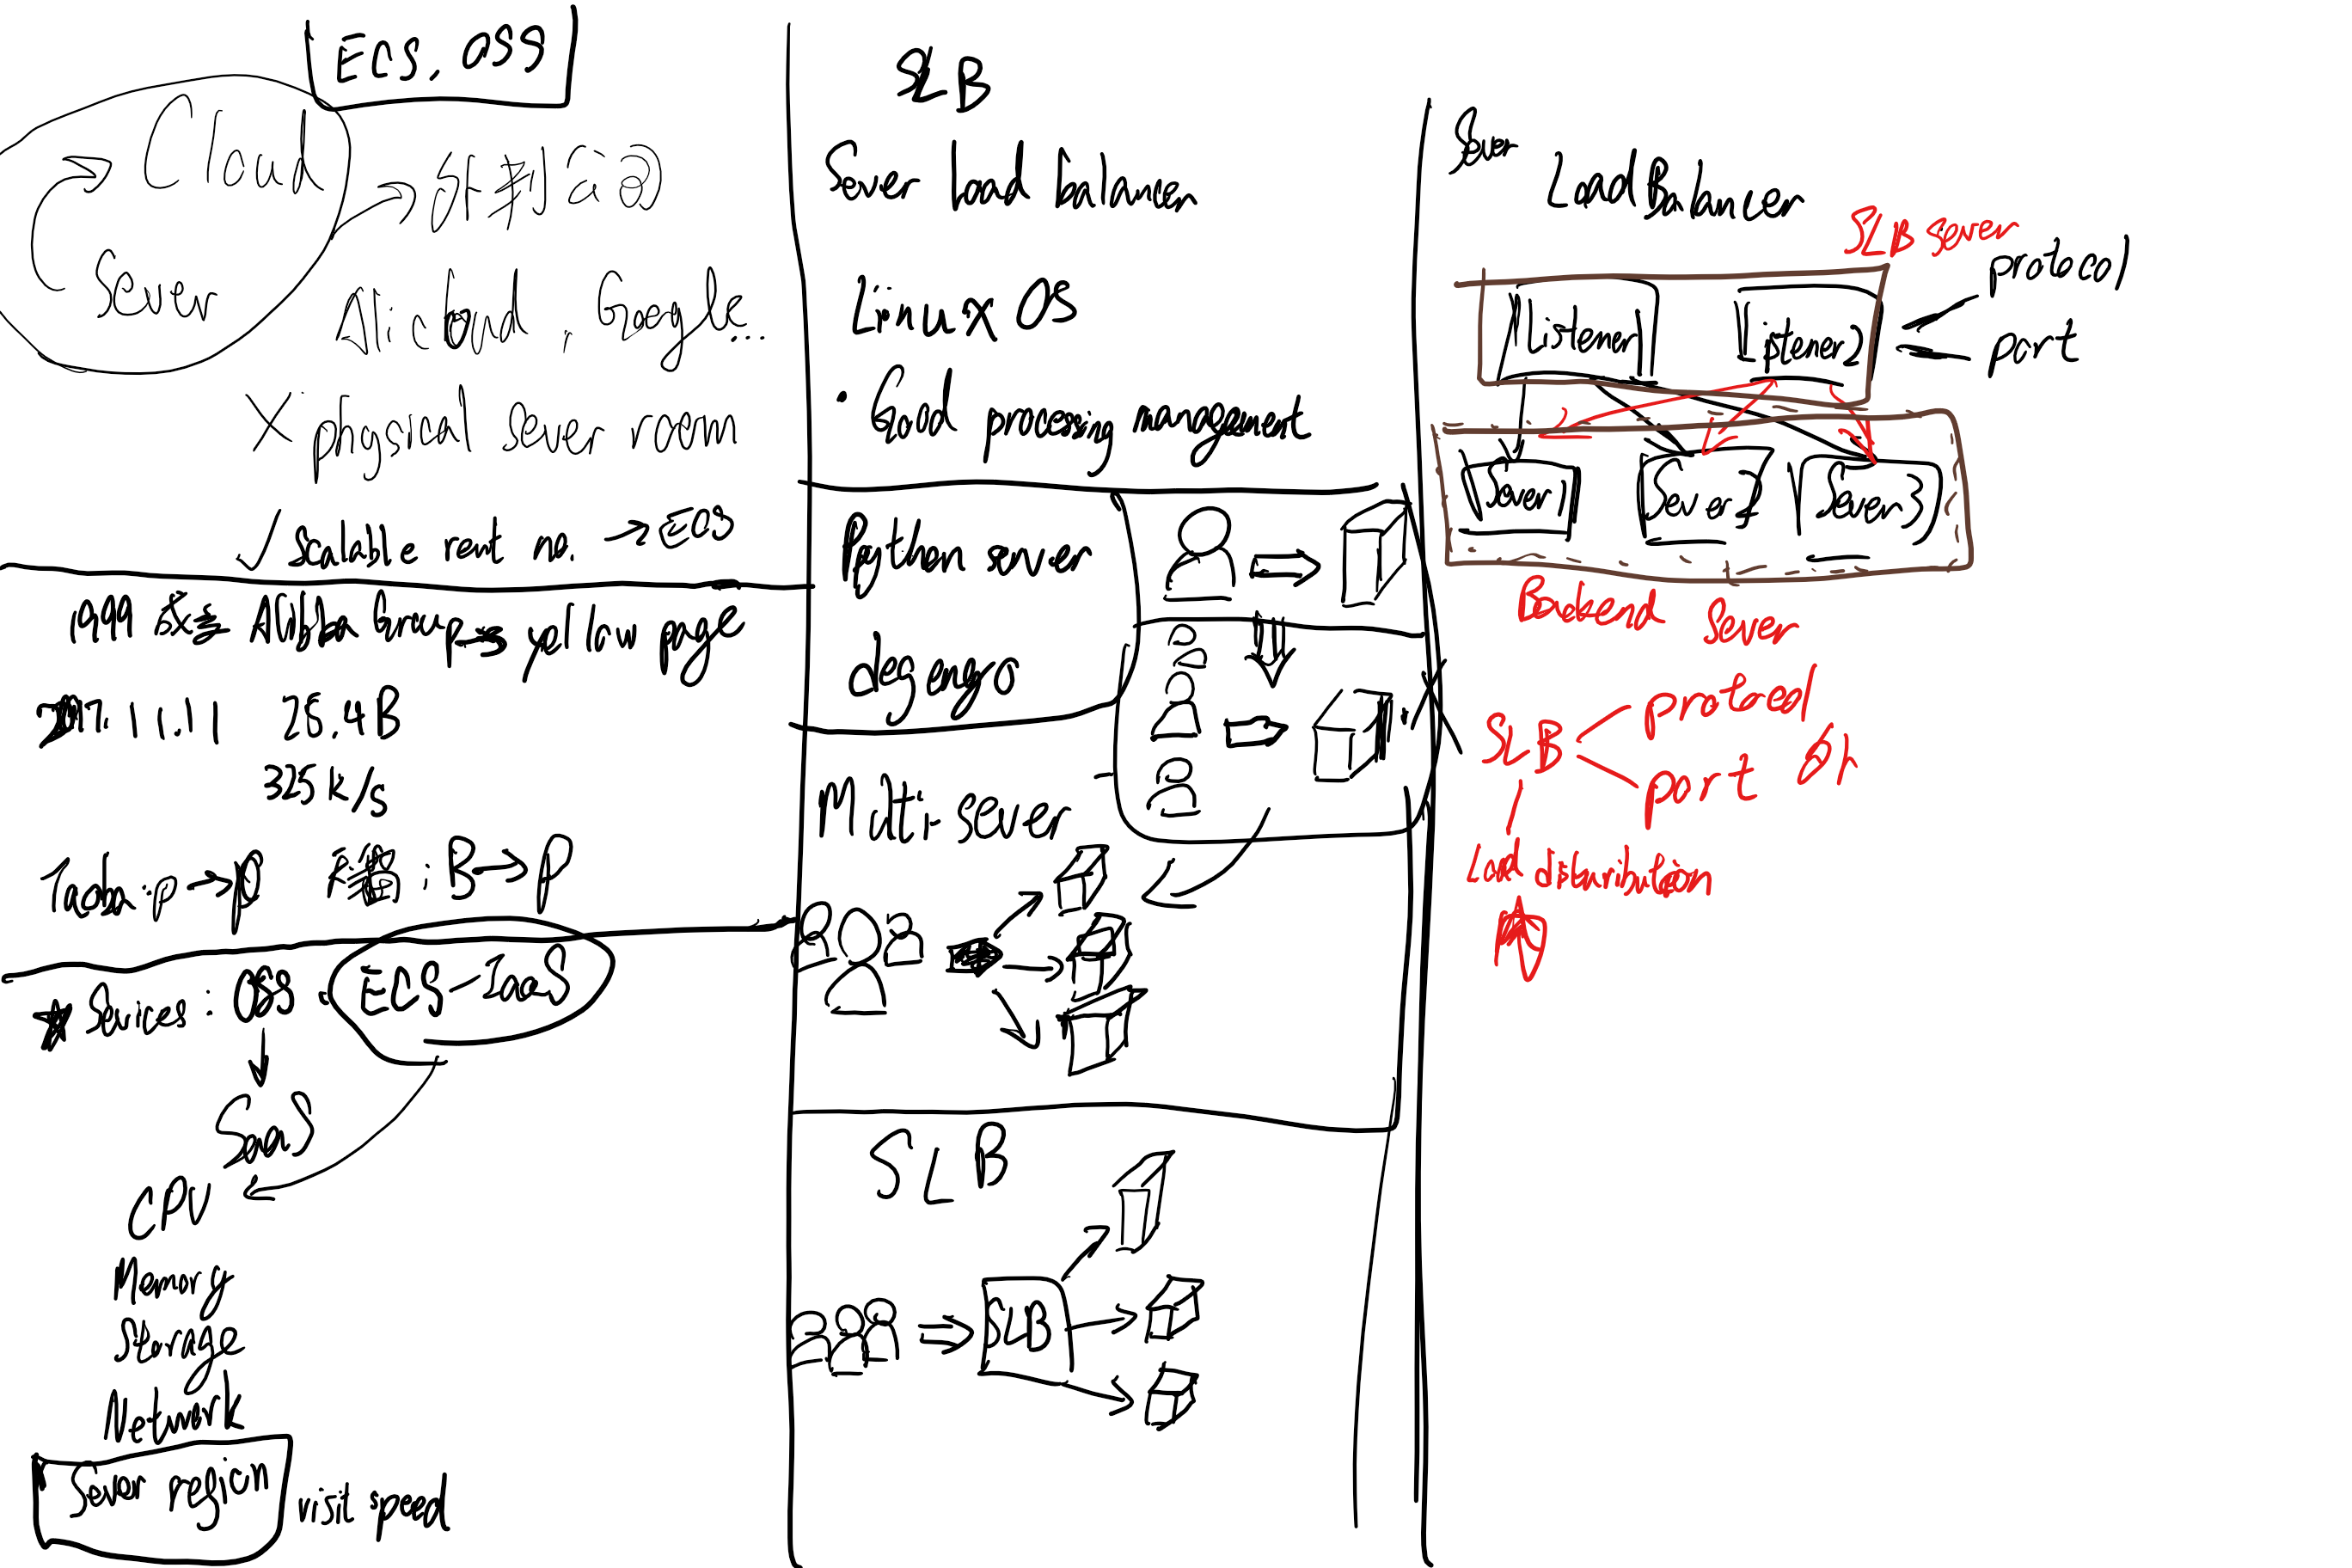 ECS, OSS
Cloud
Sever
Alicloud, Google...
X physical sever room
✓ Scalable rent no. → ECS
1999 Alibaba Group → yellow page
2017.11.11 25.4B
325k/s
: P → P : B → P
★ Services: OSS. ECS - IaaS
SaaS
CPU
Memory
Storage
Network
Sever region visit speed
SLB
Sever load balancer
Linux OS
· Good processing management
Python server
degengo
Multi-sever
SLB
SLB
Sever
Load Balancer
SLB sever
protocol
port
Listener1
Listener2
Sever1
Sever2
Sever3
Backend Sever
SLB
protocol
port
Load distribution